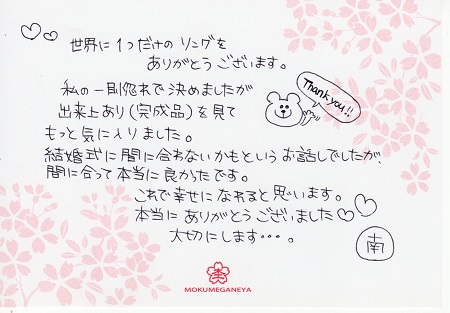 世界に1つだけのリングを
ありがとうございます。
私の一目惚れで決めましたが
Thank you!!
出来上あり(完成品)を見て
もっと気に入りました。
結婚式に間に合わないかもというお話しでしたが、
間に合って本当に良かったです。
これで幸せになれると思います。
本当にありがとうございました♡♡
大切にします…。
南
MOKUMEGANEYA